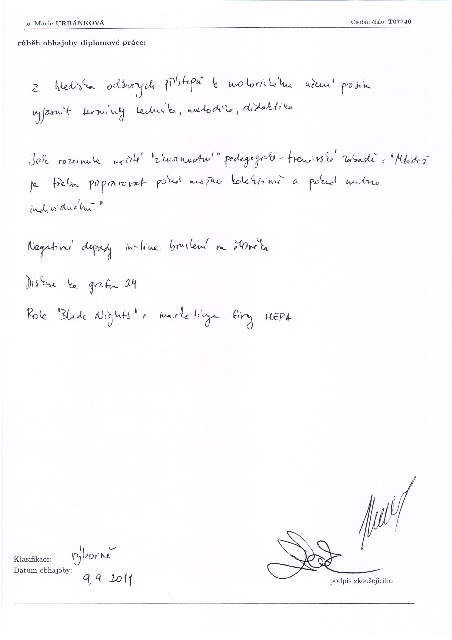 Marie URBÁNKOVÁ
Osobní číslo: T07740
růběh obhajoby diplomové práce:
z hlediska odborných přístupů k motorickému učení prosím
vyjasnit termíny technika, metodika, didaktika
Jak rozumíte určité pedagogicko-trenérské zásadě: "Mládež
je třeba připravovat pokud možno kolektivně a pokud nutno
individuálně"
Negativní dopady in-line bruslení na člověka
Diskuse ke grafu 24
Role "Blade Nights" v marketingu firmy HEPA
Klasifikace: výborně
Datum obhajoby: 9.9.2011
podpis zkoušejícího